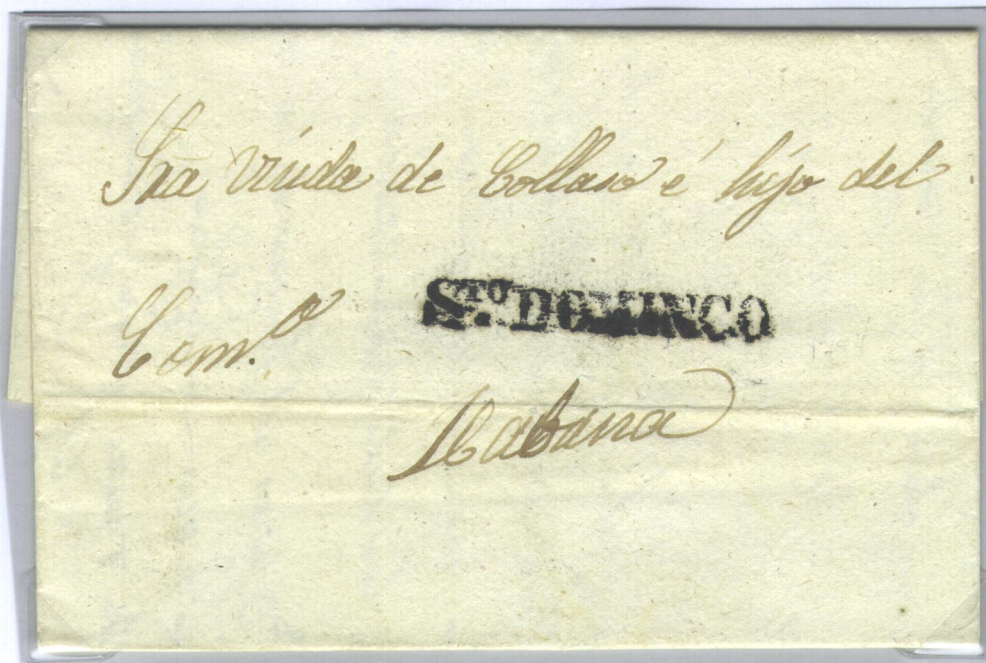 Sra viuda de Collaso é hijo del
Com.º
Sᵀᴼ. DOMINGO
Habana